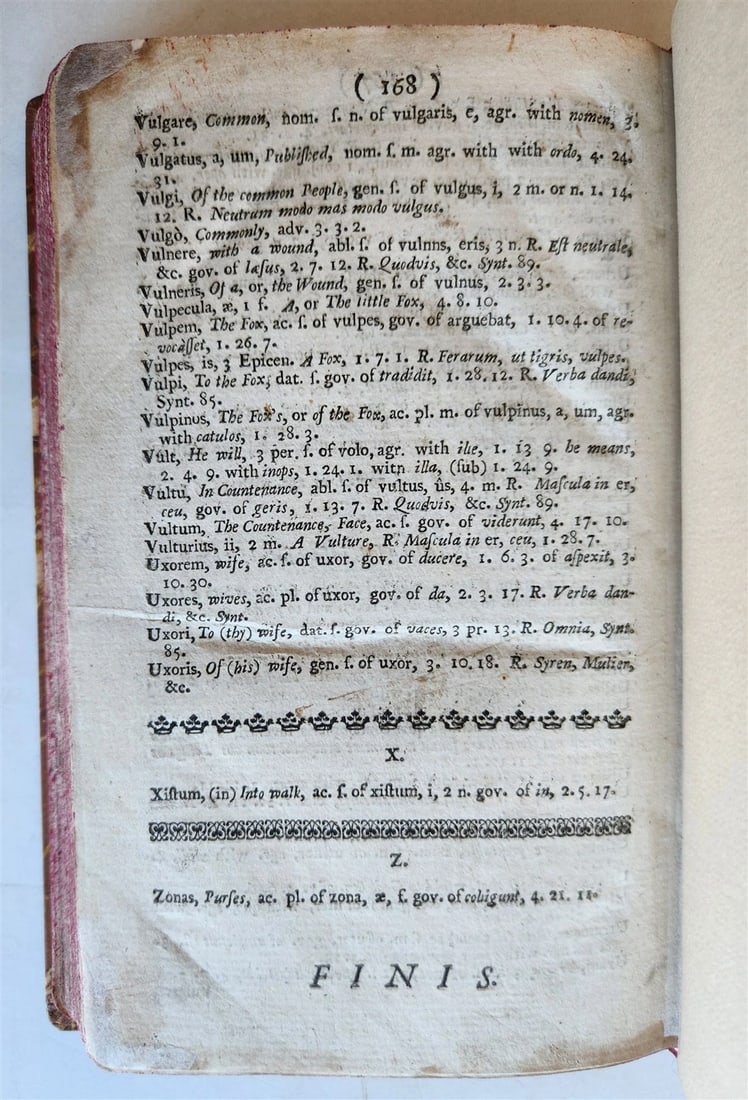 ( 168 )
Vulgare, Common, nom. ſ. n. of vulgaris, e, agr. with nomen, 3.
9. 1.
Vulgatus, a, um, Publiſhed, nom. ſ. m. agr. with with ordo, 4. 24.
31.
Vulgi, Of the common People, gen. ſ. of vulgus, i, 2 m. or n. 1. 14.
12. R. Neutrum modo mas modo vulgus.
Vulgò, Commonly, adv. 3. 3. 2.
Vulnere, with a wound, abl. ſ. of vulnns, eris, 3 n. R. Eſt neutrale,
&c. gov. of læſus, 2. 7. 12. R. Quodvis, &c. Synt. 89.
Vulneris, Of a, or, the Wound, gen. ſ. of vulnus, 2. 3. 3.
Vulpecula, æ, 1 f. A, or The little Fox, 4. 8. 10.
Vulpem, The Fox, ac. ſ. of vulpes, gov. of arguebat, 1. 10. 4. of re-
vocâſſet, 1. 26. 7.
Vulpes, is, 3 Epicen. A Fox, 1. 7. 1. R. Ferarum, ut tigris, vulpes.
Vulpi, To the Fox, dat. ſ. gov. of tradidit, 1. 28. 12. R. Verba dandi,
Synt. 85.
Vulpinus, The Fox's, or of the Fox, ac. pl. m. of vulpinus, a, um, agr.
with catulos, 1. 28. 3.
Vult, He will, 3 per. ſ. of volo, agr. with ille, 1. 13 9. he means,
2. 4. 9. with inops, 1. 24. 1. witn illa, (ſub) 1. 24. 9.
Vultu, In Countenance, abl. ſ. of vultus, ûs, 4. m. R. Maſcula in er,
ceu, gov. of geris, 1. 13. 7. R. Quodvis, &c. Synt. 89.
Vultum, The Countenance, Face, ac. ſ. gov. of viderunt, 4. 17. 10.
Vulturius, ii, 2 m. A Vulture, R. Maſcula in er, ceu, 1. 28. 7.
Uxorem, wife, ac. ſ. of uxor, gov. of ducere, 1. 6. 3. of aſpexit, 3.
10. 30.
Uxores, wives, ac. pl. of uxor, gov. of da, 2. 3. 17. R. Verba dan-
di, &c. Synt.
Uxori, To (thy) wife, dat. ſ. gov. of vaces, 3 pr. 13. R. Omnia, Synt.
85.
Uxoris, Of (his) wife, gen. ſ. of uxor, 3. 10. 18. R. Syren, Mulier,
&c.
X.
Xiſtum, (in) Into walk, ac. ſ. of xiſtum, i, 2 n. gov. of in, 2. 5. 17.
Z.
Zonas, Purſes, ac. pl. of zona, æ, f. gov. of coligunt, 4. 21. 11.
FINIS.